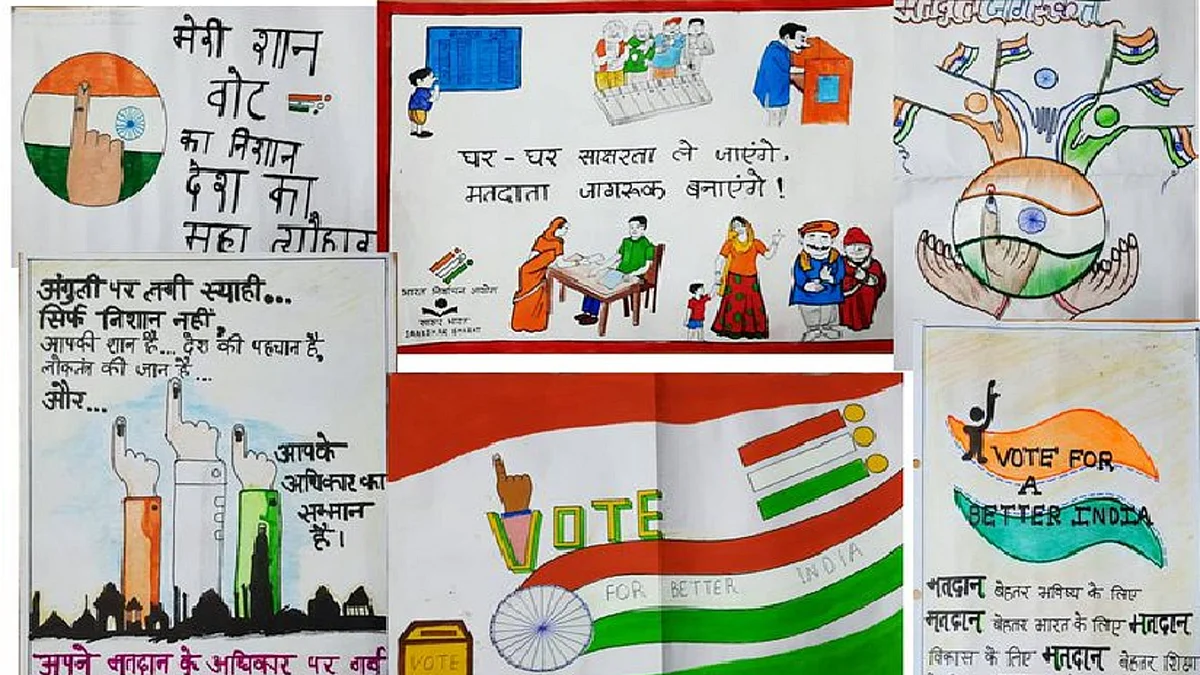 मेरी शान
वोट
का निशान
देश का
महा त्यौहार
घर - घर साक्षरता ले जाएंगे,
मतदाता जागरूक बनाएंगे !
भारत निर्वाचन आयोग
साक्षर भारत
SAAKSHAR BHARAT
मतदाता जागरूकता
अंगुली पर लगी स्याही...
सिर्फ निशान नहीं,
आपकी शान है... देश की पहचान है,
लोकतंत्र की जान है...
और...
आपके
अधिकार का
सम्मान
है।
अपने मतदान के अधिकार पर गर्व
VOTE
FOR BETTER INDIA
VOTE
VOTE FOR
A
BETTER INDIA
मतदान बेहतर भविष्य के लिए
मतदान बेहतर भारत के लिए मतदान
विकास के लिए मतदान बेहतर